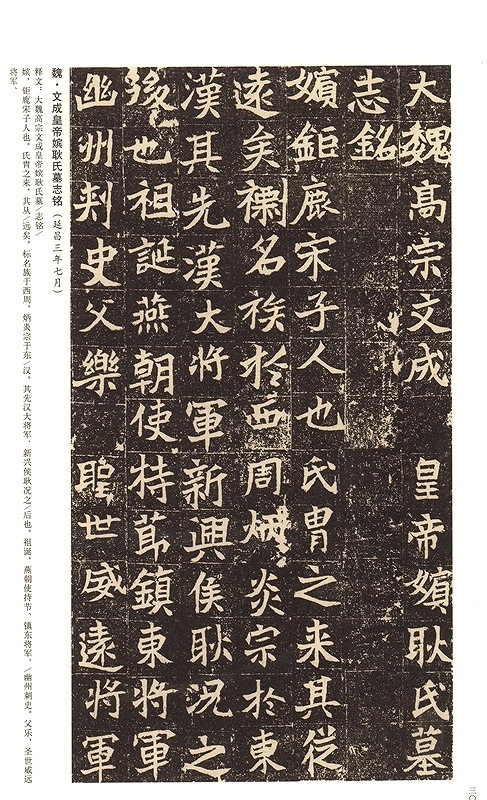 大魏高宗文成皇帝嬪耿氏墓
志銘
嬪鉅鹿宋子人也氏胄之来其從
遠矣標名族於西周炳炎宗於東
漢其先漢大將軍新興侯耿况之
後也祖誕燕朝使持節鎮東將軍
幽州刺史父樂聖世威遠將軍
魏·文成皇帝嫔耿氏墓志铭（延昌三年七月）
释文：大魏高宗文成皇帝嫔耿氏墓/志铭/
嫔，钜鹿宋子人也。氏胄之来，其从/远矣。标名族于西周，炳炎宗于东/汉。其先汉大将军、新兴侯耿况之/后也。祖诞，燕朝使持节、镇东将军、/幽州刺史。父乐，圣世威远
将军、
三〇